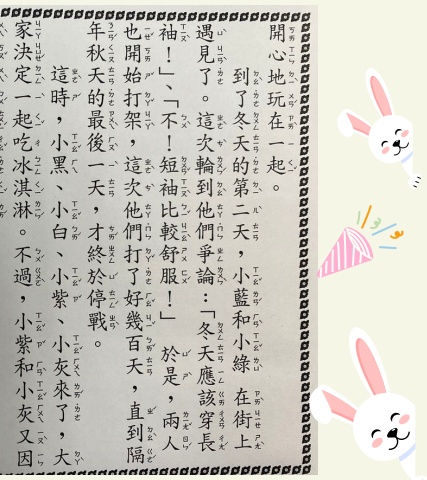 開心地玩在一起。
到了冬天的第二天，小藍和小綠 在街上
遇見了。這次輪到他們爭論：「冬天應該穿長
袖！」、「不！短袖比較舒服！」 於是，兩人
也開始打架，這次他們打了好幾百天，直到隔
年秋天的最後一天，才終於停戰。
這時，小黑、小白、小紫、小灰來了，大
家決定一起吃冰淇淋。不過，小紫和小灰又因